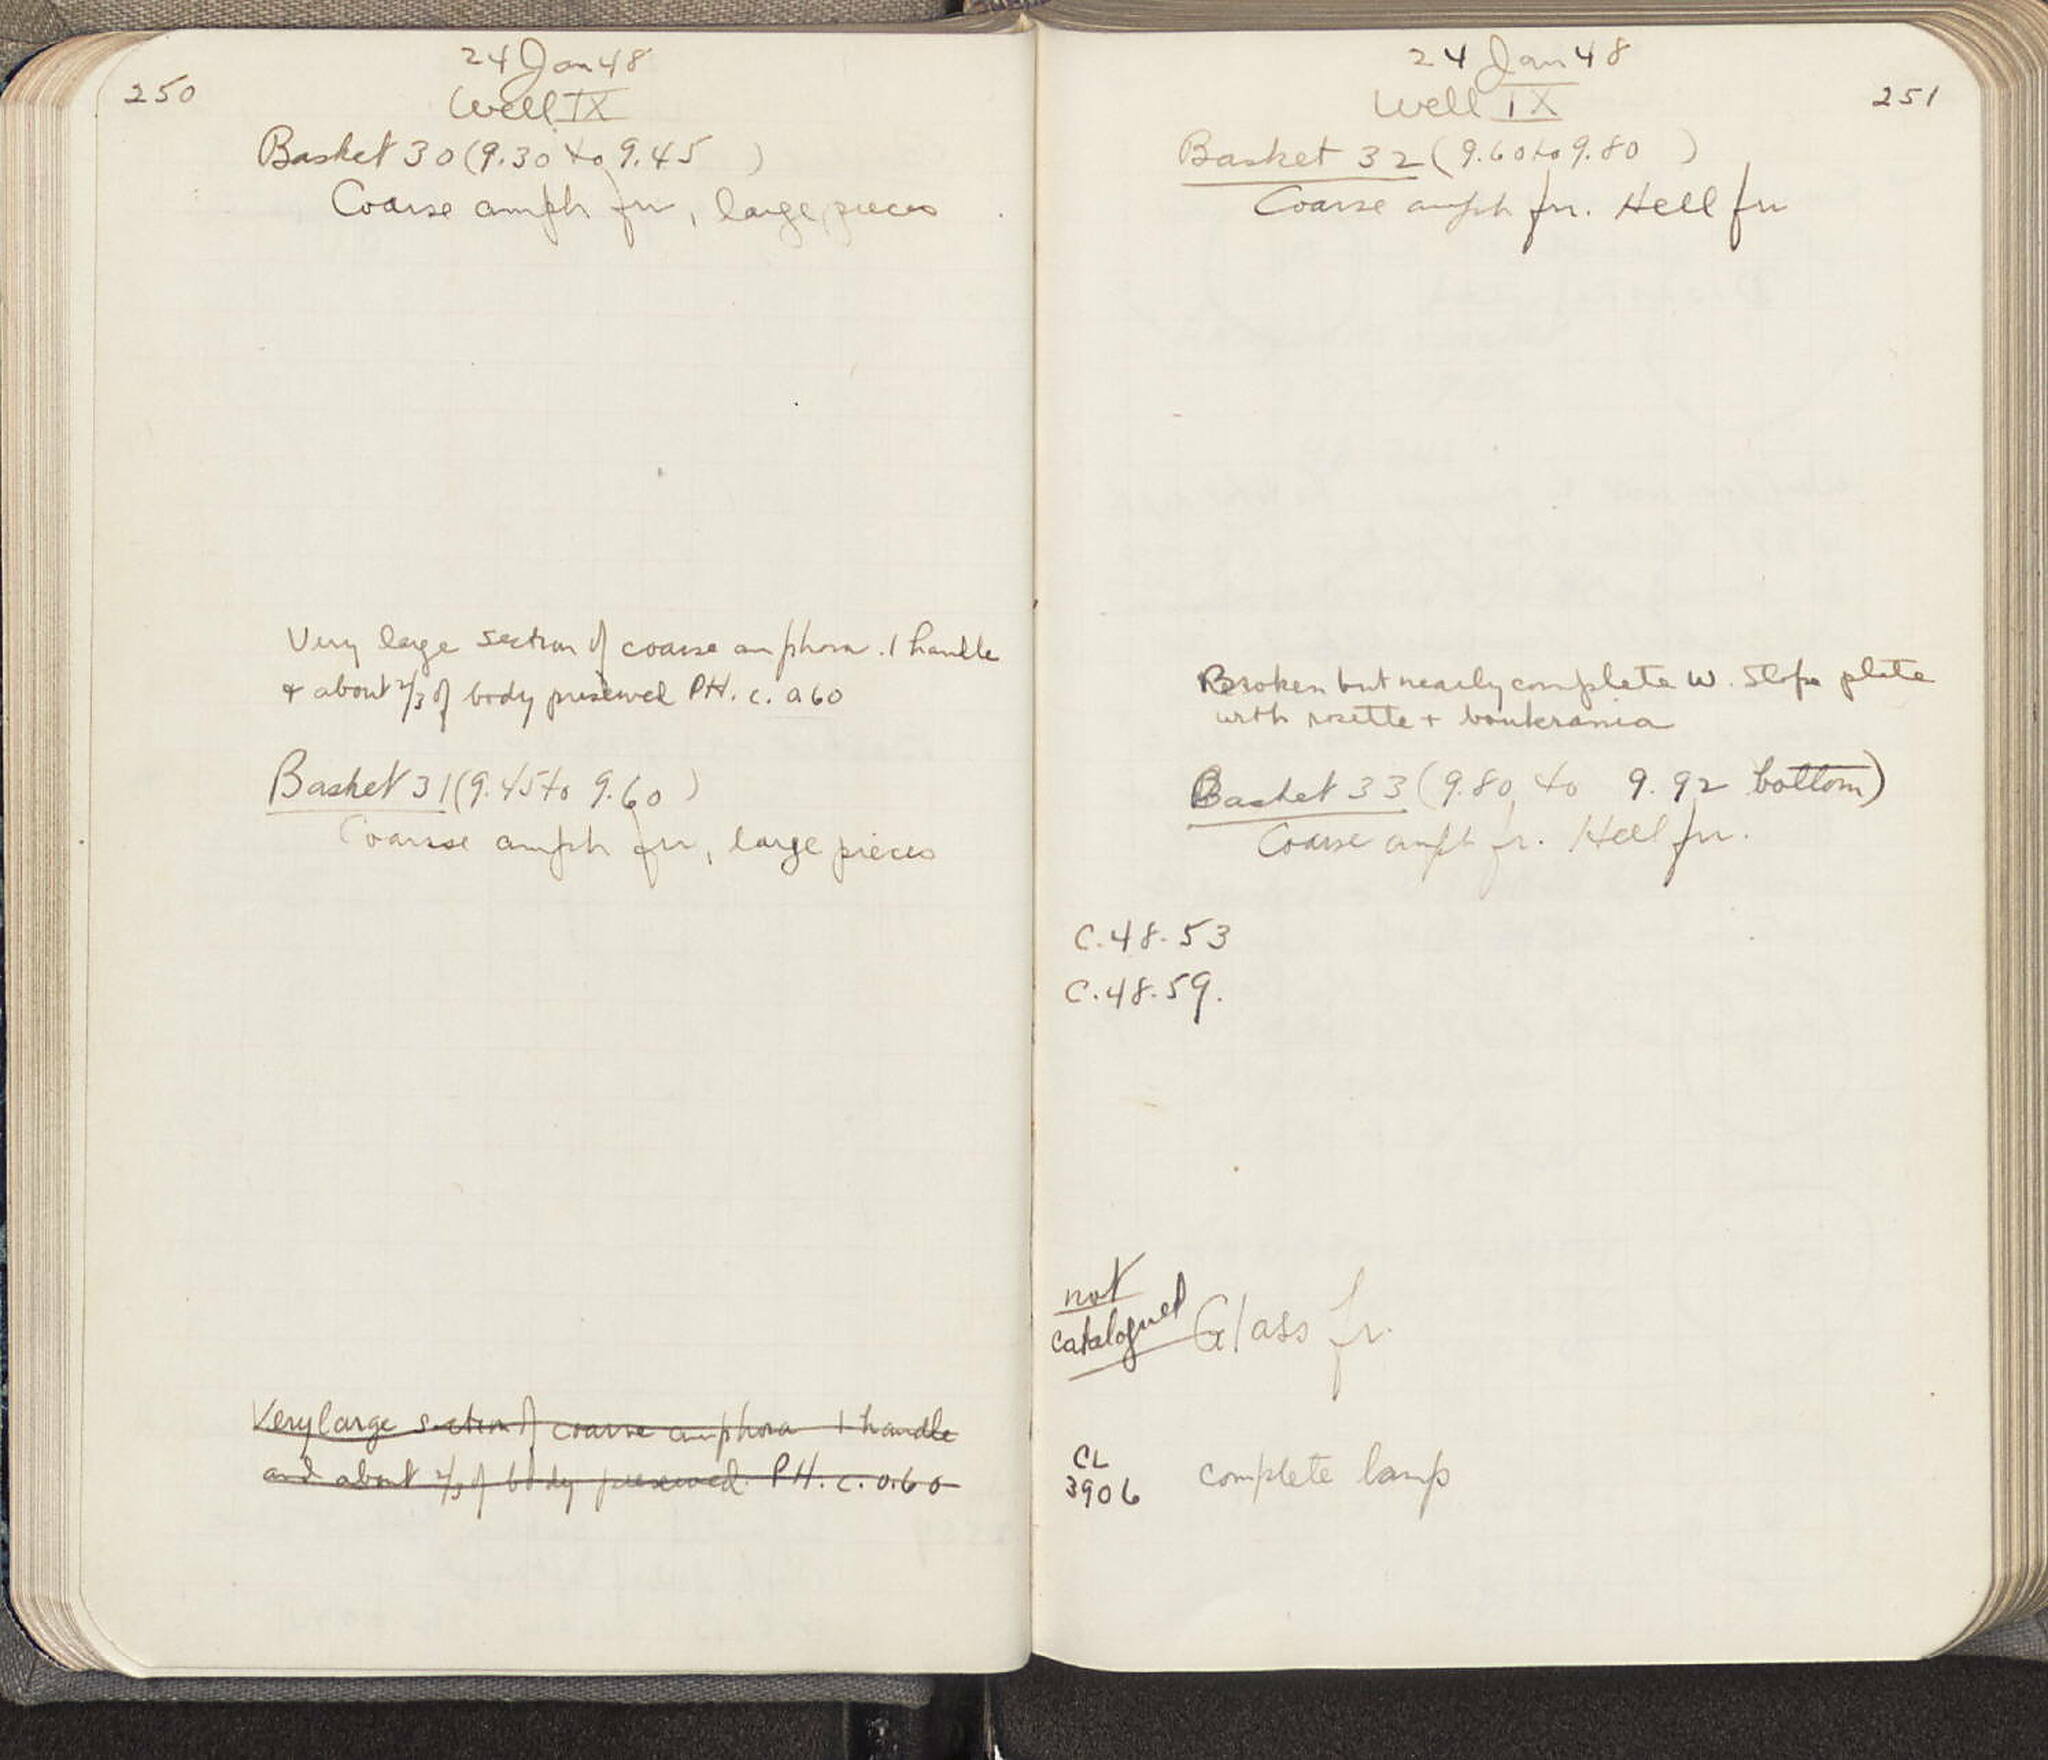 250
24 Jan 48
Well IX
Basket 30 (9.30 to 9.45 )
Coarse amph fr, large pieces
Very large section of coarse amphora. 1 handle
+ about 2/3 of body preserved PH. c. 0.60
Basket 31 (9.45 to 9.60 )
Coarse amph fr, large pieces
Very large section of coarse amphora 1 handle
and about 2/3 of body preserved. PH. c. 0.60
24 Jan 48
251
Well IX
Basket 32 (9.60 to 9.80 )
Coarse amph fr. Hell fr
Broken but nearly complete W. Slope plate
with rosette + boukrania
Basket 33 (9.80 to 9.92 bottom)
Coarse amph fr. Hell fr.
C.48-53
C.48-59.
not
catalogued Glass fr.
CL
3906 complete lamp